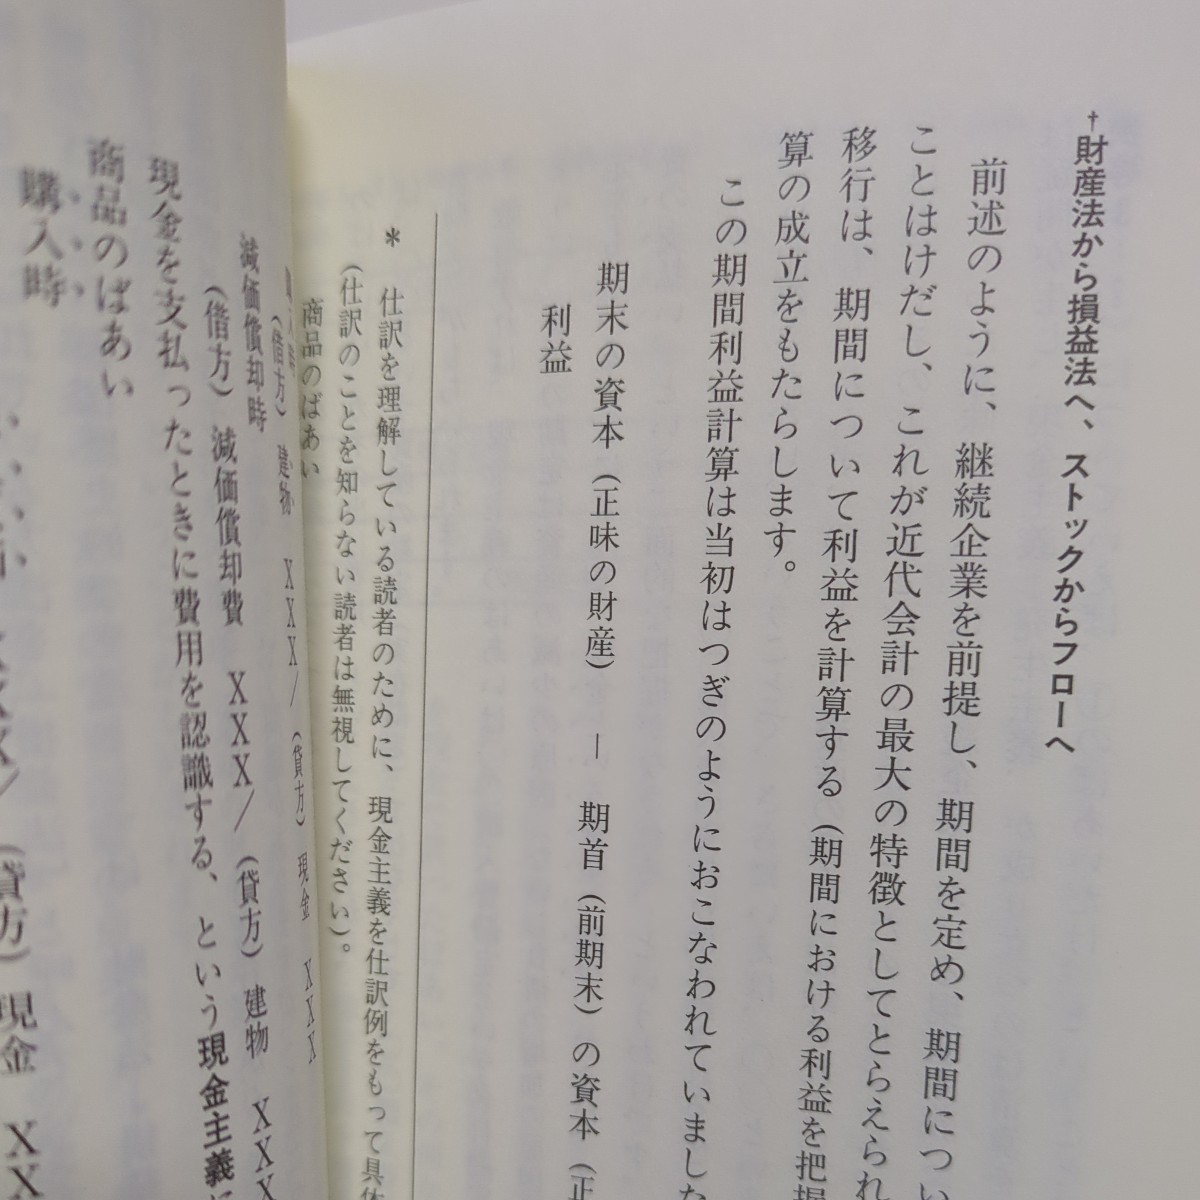 †財産法から損益法へ、ストックからフローへ
前述のように、継続企業を前提し、期間を定め、期間につい
ことはけだし、これが近代会計の最大の特徴としてとらえられ
移行は、期間について利益を計算する(期間における利益を把握
算の成立をもたらします。
この期間利益計算は当初はつぎのようにおこなわれていました
期末の資本(正味の財産) − 期首(前期末)の資本(正
利益
* 仕訳を理解している読者のために、現金主義を仕訳例をもって具体
(仕訳のことを知らない読者は無視してください)。
商品のばあい
(借方) 建物 XXX/(貸方) 現金 XXX
減価償却時
(借方) 減価償却費 XXX/(貸方) 建物 XXX
現金を支払ったときに費用を認識する、という現金主義に
商品のばあい
購入時
XX/(貸方) 現金 XX